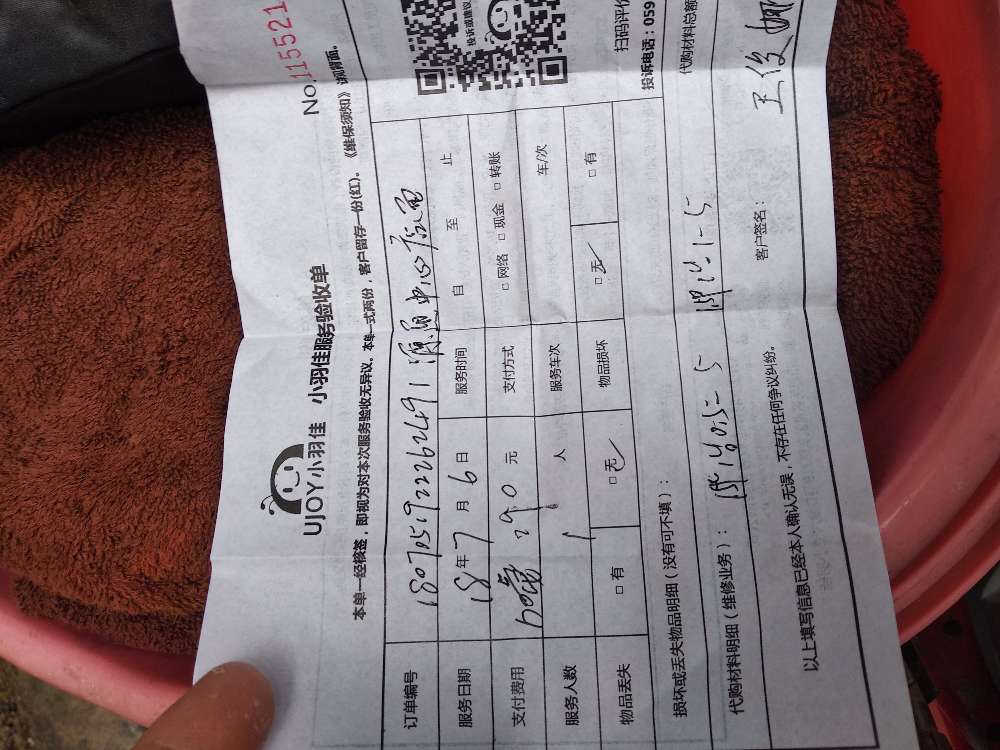 No.J115521
UJOY小羽佳 小羽佳服务验收单
本单一经核签，即视为对本次服务验收无异议。本单一式两份，客户留存一份(红)。《维保须知》详见背面。
订单编号 1807051922262491
服务日期 18年7月6日 服务时间 自 至 止
支付费用 290元 支付方式 □网络 □现金 □转账
服务人数 1人 服务车次 车/次
物品丢失 □有 □无 物品损坏 □无 □有
投诉或建议
扫码评价
投诉电话：059
损坏或丢失物品明细（没有可不填）：
代购材料明细（维修业务）：
代购材料总额
以上填写信息已经本人确认无误，不存在任何争议纠纷。 客户签名：